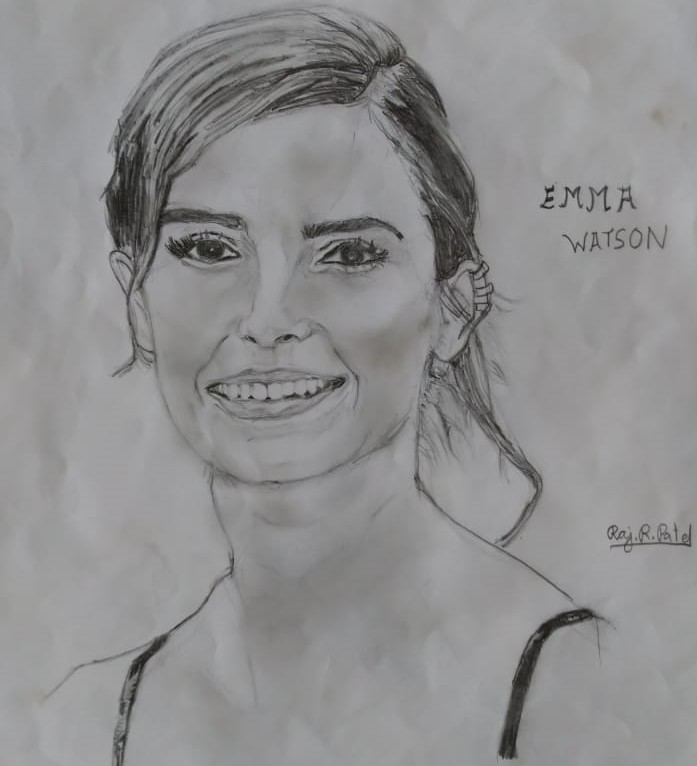 EMMA
WATSON
Raj.R.Patel